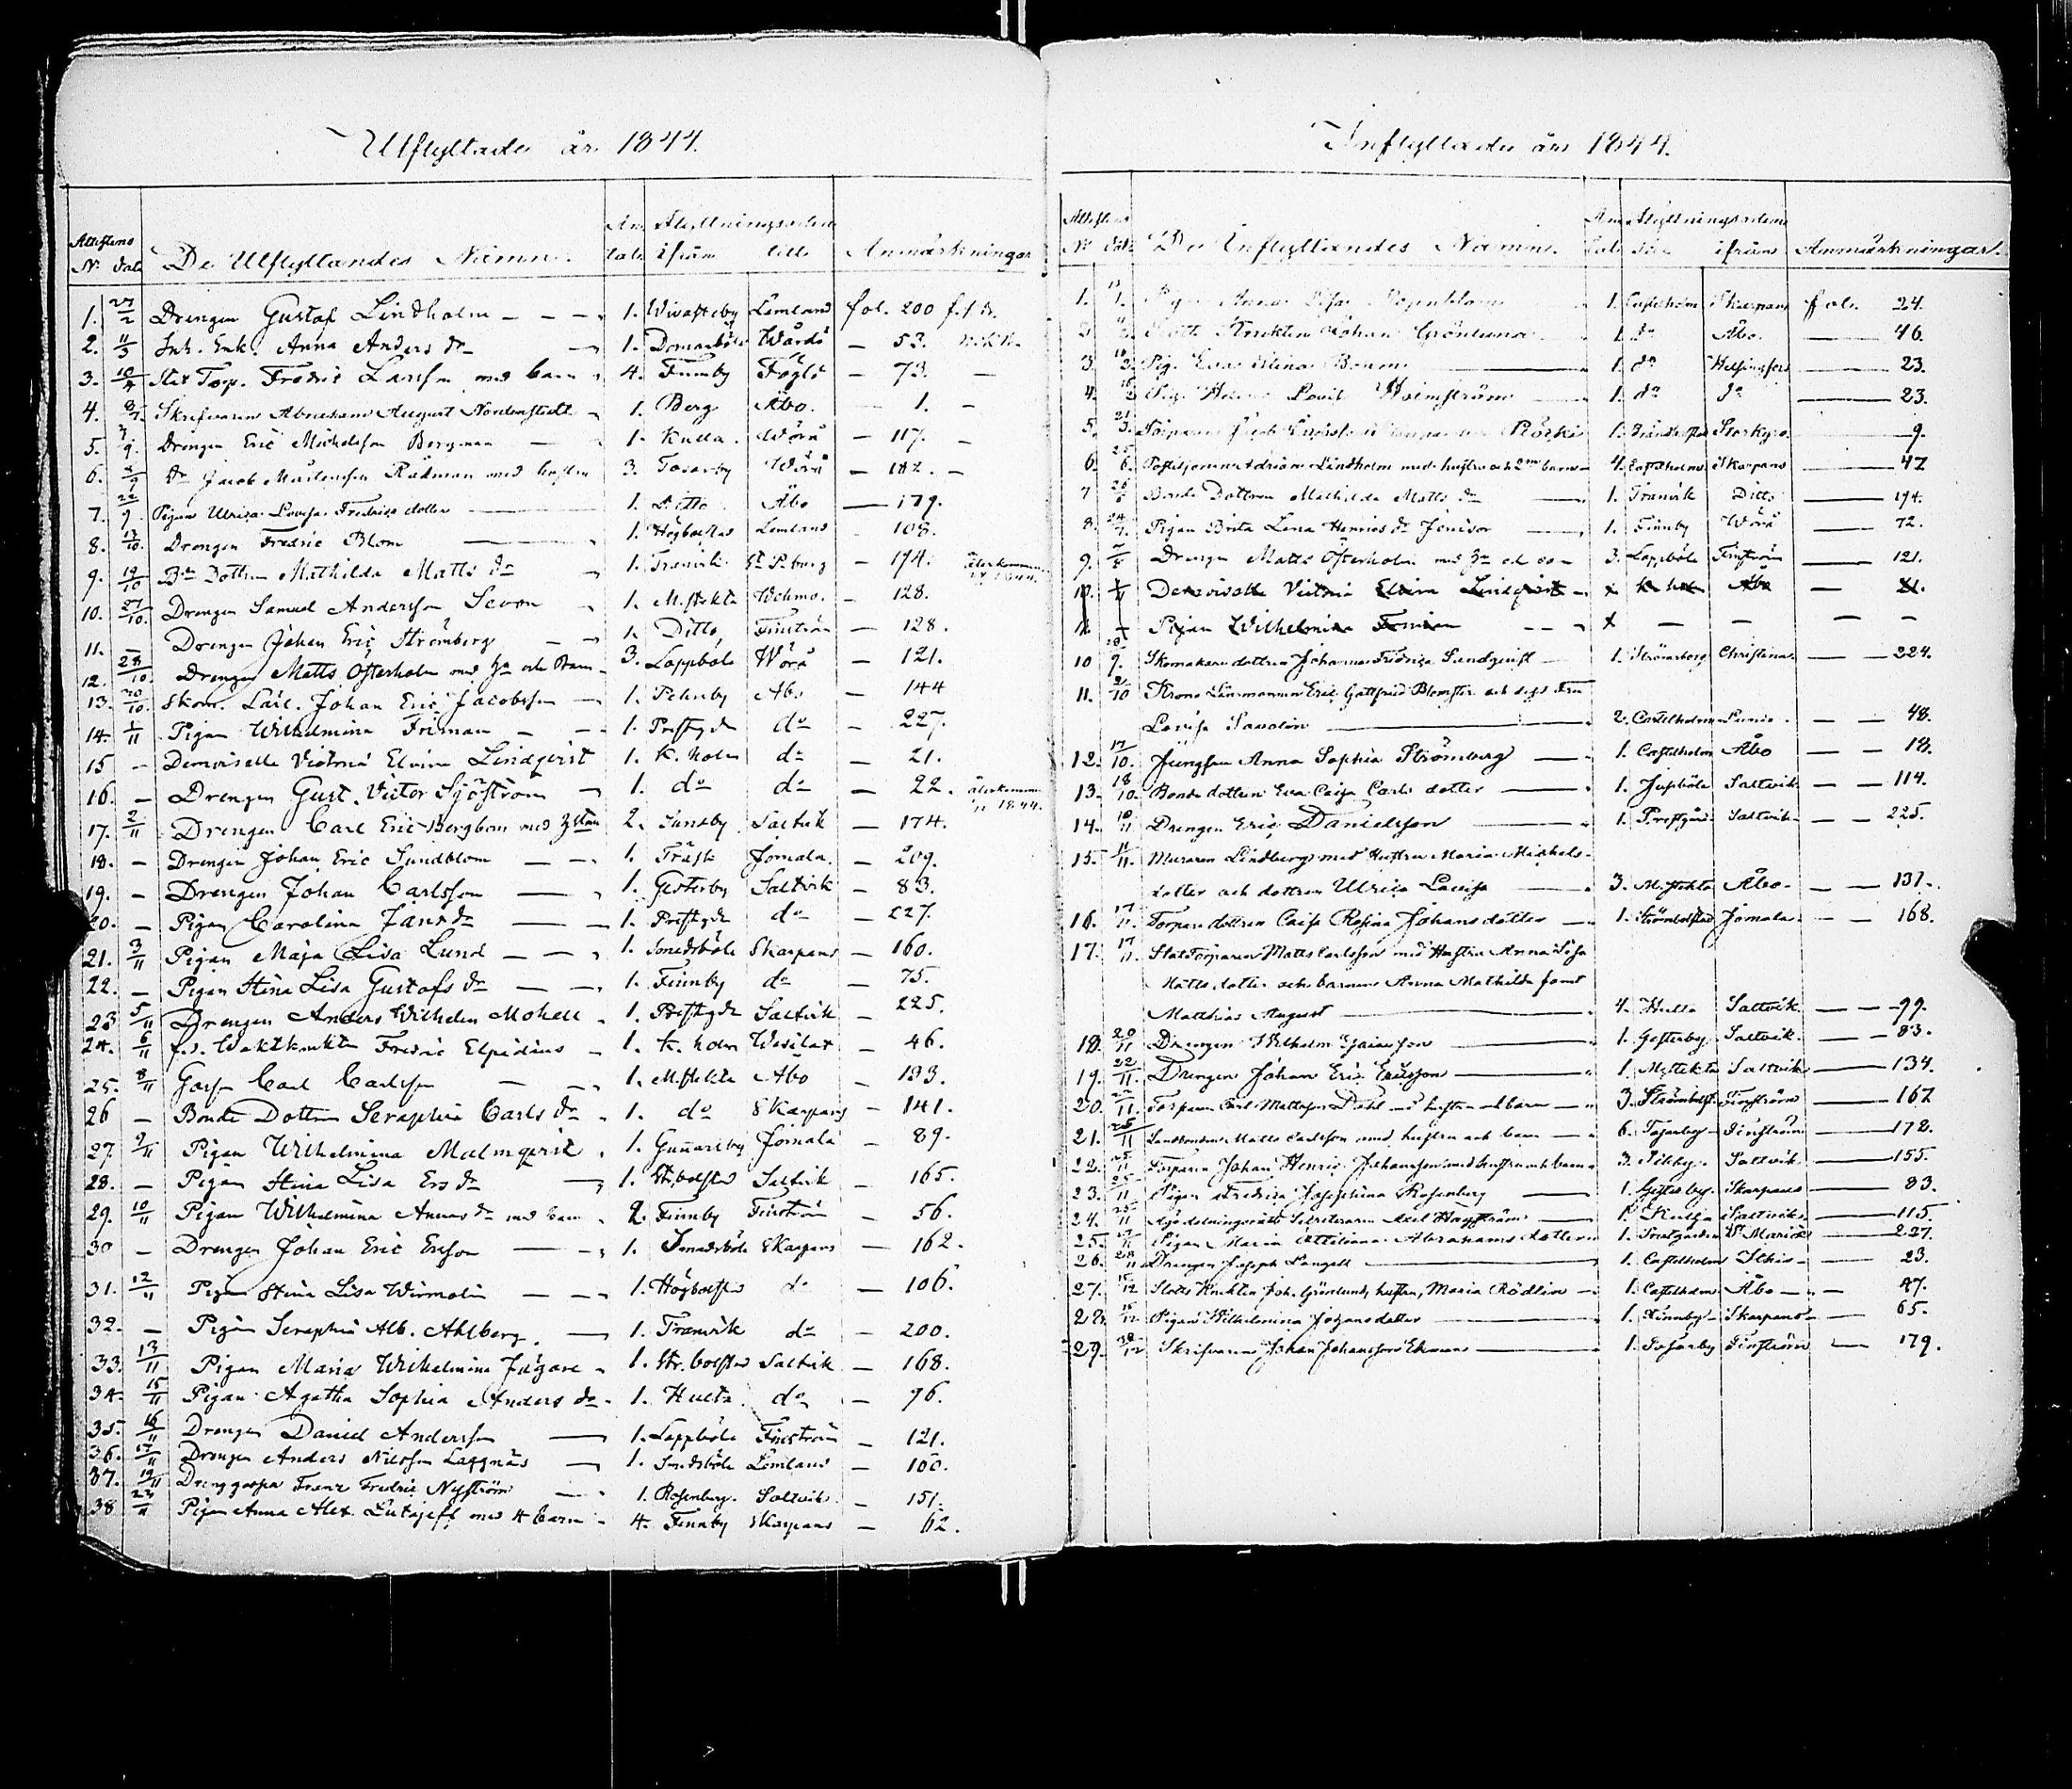 Utflyttade år 1844.
Attestens An Flyttningsorten
No dat. De Utflyttandes Namn. tal ifrån till Anmärkningar
1. 27/2 Drengen Gustaf Lindholm 1. Lemland fol. 200
2. 11/3 Inh. Enk. Anna Anders dr 1. Domarböle Wårdö — 53.
3. Stat Torp. Fredric Larsson med barn 4. Finnby Föglö — 73. —
4. Skrifvaren Abraham August Nordenstedt 1. Berg Åbo. — 1. —
5. Drengen Eric Michelsson Bergman 1. Kulla. Wörå — 117. —
6. Dr Jacob Mårtensson Rädman med hustru 3. Tosarby Wörå — 182. —
7. 22/9 Pigan Ulrica Lovisa Fredrics dotter 1. Ditto Åbo — 179.
8. 13/10 Drengen Fredric Blom 1. Högbolstad Lemland 108.
9. 19/10 Bde Dottren Mathilda Matts dr 1. Tranvik St P:burg — 174. återkommen 1844.
10. 27/10. Drengen Samuel Andersson 1. M.stekta Wehmo. — 128.
11. — Drengen Johan Eric Strömberg 1. Ditto, Finström — 128.
12. 28/10 Drengen Matts Österholm med h. och barn 3. Lappböle Wörå — 121.
13. 30/10. Skom. Lärl. Johan Eric Jacobsson 1. Åbo — 144
14. 1/11 Pigan Wilhelmina Friman 1. Prestgdn do — 227.
15 — Demoiselle Victoria Elvira Lindqvist 1. K. holm do — 21.
16. — Drengen Gust. Victor Sjöström 1. do do — 22. återkommen 1844.
17. 2/11 Drengen Carl Eric Bergbom med hustru 2. Sundby Saltvik — 174.
18. — Drengen Johan Eric Sundblom 1. Träsk Jomala. — 209.
19. — Drengen Johan Carlsson 1. Gesterby Saltvik — 83.
20. — Pigan Carolina Jans dr 1. Prestgdn do — 227.
21. 3/11 Pigan Maja Lisa Lund 1. Smedsböle Skarpans — 160.
22. — Pigan Stina Lisa Gustafs dr 1. Finnby do — 75.
23 5/11 Drengen Anders Wilhelm Mohell 1. Prestgdn Saltvik — 225.
24. 6/11 f.d. Waktknekten Fredric Elpidius 1. K. holm — 46.
25. 8/11 Gossen Carl Carlsson 1. M.stekta Åbo — 133.
26 — Bonde Dottren Seraphia Carls dr 1. do Skarpans — 141.
27. 9/11 Pigan Wilhelmina Malmqvist 1. Gunnarsby Jomala — 89.
28. — Pigan Stina Lisa Ers dr 1. Str.bolstad Saltvik — 165.
29. 10/11 Pigan Wilhelmina Annas dr med barn 2. Finnby Finström — 56.
30 — Drengen Johan Eric Ersson 1. Smedsböle Skarpans — 162.
31. 12/11 Pigan Stina Lisa Wirmolin 1. Högbolstad do — 106.
32. — Pigan Seraphia Alb. Ahlberg. 1. Tranvik do — 200.
33. 13/11 Pigan Maria Wilhelmina Jägare 1. Str.bolstad Saltvik — 168.
34. 15/11 Pigan Agatha Sophia Anders dr 1. Hulta. do — 96.
35. 16/11 Drengen Daniel Andersson 1. Lappböle Finström — 121.
36. 17/11 Drengen Anders Nilsson Laggnäs 1. Smedsböle Lemland — 100.
37. 19/11 Drenggossen Franz Fredric Nyström 1. Rosenberg. Saltvik — 151.
38 Pigan Anna Alex. med 4 barn 4. Finnby Skarpans — 62.
Inflyttade år 1844.
Attestens An Flyttningsorten
No dat. De Inflyttandes Namn. tal till ifrån Anmärkningar.
1. Pigan Anna Lisa 1. Castelholm Skarpans fol. 24.
2 Slotts Knekten Johan Grönlund 1. do Åbo. 46.
3. Pig. Eva Stina 1. do Helsingfors 23.
4. Pig. Helena Lovisa Holmström 1. do do 23.
5. 1. Storkyro 9.
6. Postiljonen Adrian Lindholm med hustru och 2ne barn 4. Castelholm Skarpans 47
7 Bonde Dottren Mathilda Matts dr 1. Tranvik Ditto 174.
8. Pigan Brita Lena Henrics dr 1. Finnby Wörå 72.
9. Drengen Matts Österholm med h. och son 3. Lappböle Finström 121.
10. 1/11 Demoiselle Victoria Elvira Lindqvist 1 K. holm Åbo — 21.
11. — Pigan Wilhelmina Friman 1 — — — —
10 28/9. Skomakare dottren Johanna Fredrica Sundqvist 1. Strömsberg Christina — — 224.
11. 2/10 Krono Länsmannen Eric Gottfried Blomster och dess Fru
Lovisa 2. Castelholm — — 48.
12. 17/10. Jungfrun Anna Sophia Strömberg 1. Castelholm Åbo — — 18.
13. 18/10. Bonde dottren Eva Caisa Carls dotter 1. Jussböle Saltvik — — 114.
14. 10/11 Drengen Eric Danielsson 1. Prestgård Saltvik — — 225.
15. 11/11. Muraren Lindberg med Hustru Maria Michels-
dotter och dottren Ulrica Lovisa 3. M.stekta Åbo. — — 131.
16. 17/11. Torpare dottren Caisa Rosina Johans dotter 1. Strömbolstad Jomala. — — 168.
17. 17/11. Stat Torparen Matts Carlsson med Hustru Anna Lisa
Matts dotter och barnen Anna Mathilda samt
Matthias August 4. Hulta Saltvik. — — 99.
18. 20/11 Drengen Wilhelm 1. Gesterby. Saltvik. — — 83.
19. 22/11. Drengen Johan Eric Ericsson 1. M.stekta Saltvik — 134.
20. Torparen Carl Mattsson Dahl med hustru och barn 3. Strömbolst. Finström — 167
21. 25/11 Landbonden Matts Carlsson med hustru och barn 6. Tosarby Finström 178.
22. 25/11 Torparen Johan Henric Johansson med hustru och barn 3. Saltvik 155.
23. 25/11 Pigan Fredrica Josephina Rosenberg 1. Gesterby. Skarpans 83.
24. 25/11 Ägodelningsrätts Secreteraren Axel 1. Kulla Saltvik 115.
25. Pigan Maria Attiliana Abrahams dotter 1. St Marie 227.
26. 28/11 Drengen Joseph Langell 1. Castelholm 23.
27. 15/12 Slotts Knekten Joh. Grönlunds hustru, Maria Rödlin 1. Castelholm Åbo — 47.
28. 15/12 Pigan Wilhelmina Johans dotter 1. Finnby Skarpans 65.
29. 30/12 Skrifvaren Johan Johansson Ekman 1. Tosarby Finström — 179.